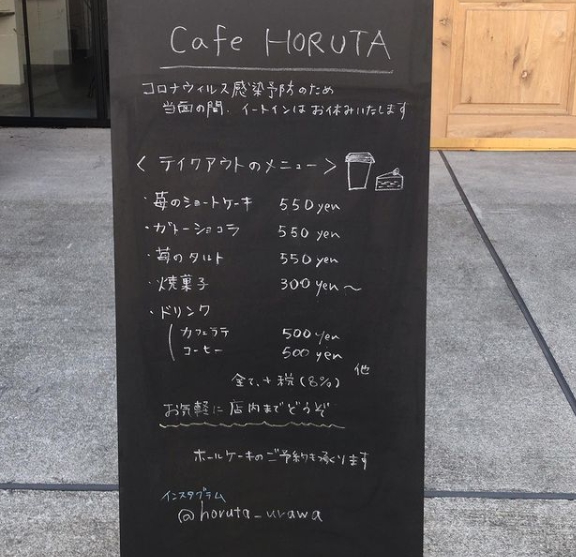 Cafe HORUTA
コロナウィルス感染予防のため
当面の間、イートインはお休みいたします
< テイクアウトのメニュー >
・苺のショートケーキ 550 yen
・ガトーショコラ 550 yen
・苺のタルト 550 yen
・焼菓子 300 yen 〜
・ドリンク
カフェラテ 500 yen
コーヒー 500 yen
他
全て、+ 税 (8%)
お気軽に店内までどうぞ
ホールケーキのご予約も承ります
インスタグラム
@horuta_urawa